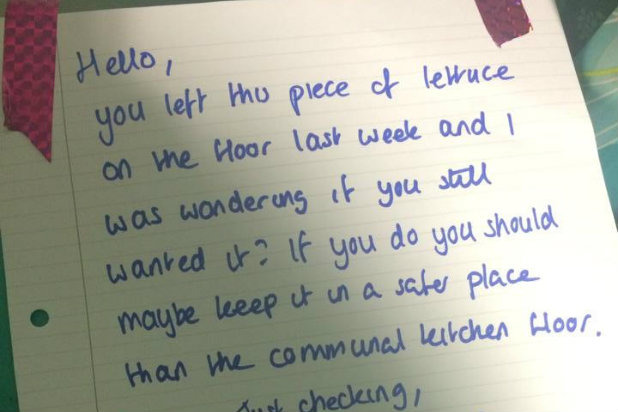 Hello,
you left this piece of lettuce
on the floor last week and I
was wondering if you still
wanted it? If you do you should
maybe keep it in a safer place
than the communal kitchen floor.
Just checking,